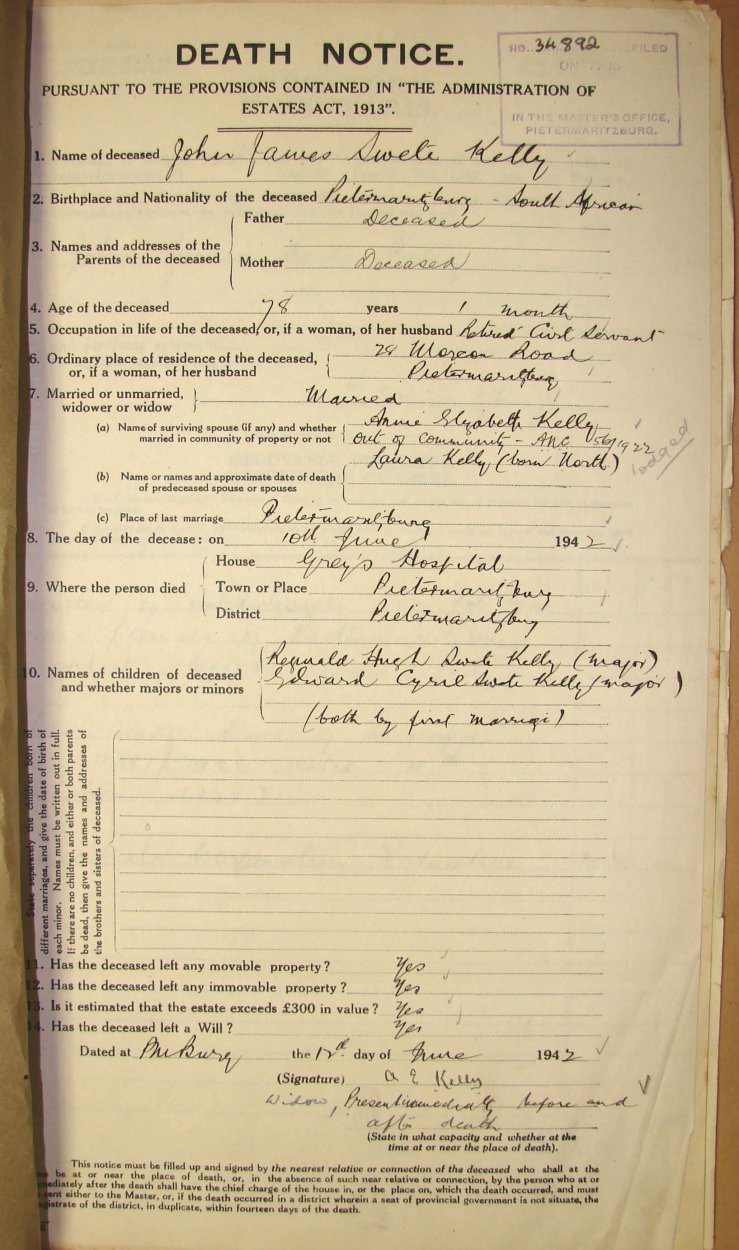 DEATH NOTICE.
NO. 34892 FILED
ON
IN THE MASTER'S OFFICE,
PIETERMARITZBURG.
PURSUANT TO THE PROVISIONS CONTAINED IN "THE ADMINISTRATION OF
ESTATES ACT, 1913".
1. Name of deceased John James Swete Kelly
2. Birthplace and Nationality of the deceased Pietermaritzburg - South African
3. Names and addresses of the
Parents of the deceased
Father Deceased
Mother Deceased
4. Age of the deceased 78 years 1 month
5. Occupation in life of the deceased, or, if a woman, of her husband Retired Civil Servant
6. Ordinary place of residence of the deceased,
or, if a woman, of her husband
28 Road
Pietermaritzburg
7. Married or unmarried,
widower or widow
Married
(a) Name of surviving spouse (if any) and whether
married in community of property or not
Annie Elizabeth Kelly
out of community - ANC 56/1922
lodged
Laura Kelly (born North)
(b) Name or names and approximate date of death
of predeceased spouse or spouses
(c) Place of last marriage Pietermaritzburg
8. The day of the decease: on 10th June 1942
9. Where the person died
House Grey's Hospital
Town or Place Pietermaritzburg
District Pietermaritzburg
10. Names of children of deceased
and whether majors or minors
Reginald Hugh Swete Kelly (major)
Edward Cyril Swete Kelly (major)
(both by first marriage)
State separately the children born of
different marriages, and give the date of birth of
each minor. Names must be written out in full.
If there are no children, and either or both parents
be dead, then give the names and addresses of
the brothers and sisters of deceased.
11. Has the deceased left any movable property? Yes
12. Has the deceased left any immovable property? Yes
13. Is it estimated that the estate exceeds £300 in value? Yes
14. Has the deceased left a Will? Yes
Dated at PMBurg the day of June 1942
(Signature) A E Kelly
Widow, Present immediately before and
after death
(State in what capacity and whether at the
time at or near the place of death).
This notice must be filled up and signed by the nearest relative or connection of the deceased who shall at the
be at or near the place of death, or, in the absence of such near relative or connection, by the person who at or
mediately after the death shall have the chief charge of the house in, or the place on, which the death occurred, and must
sent either to the Master, or, if the death occurred in a district wherein a seat of provincial government is not situate, the
gistrate of the district, in duplicate, within fourteen days of the death.